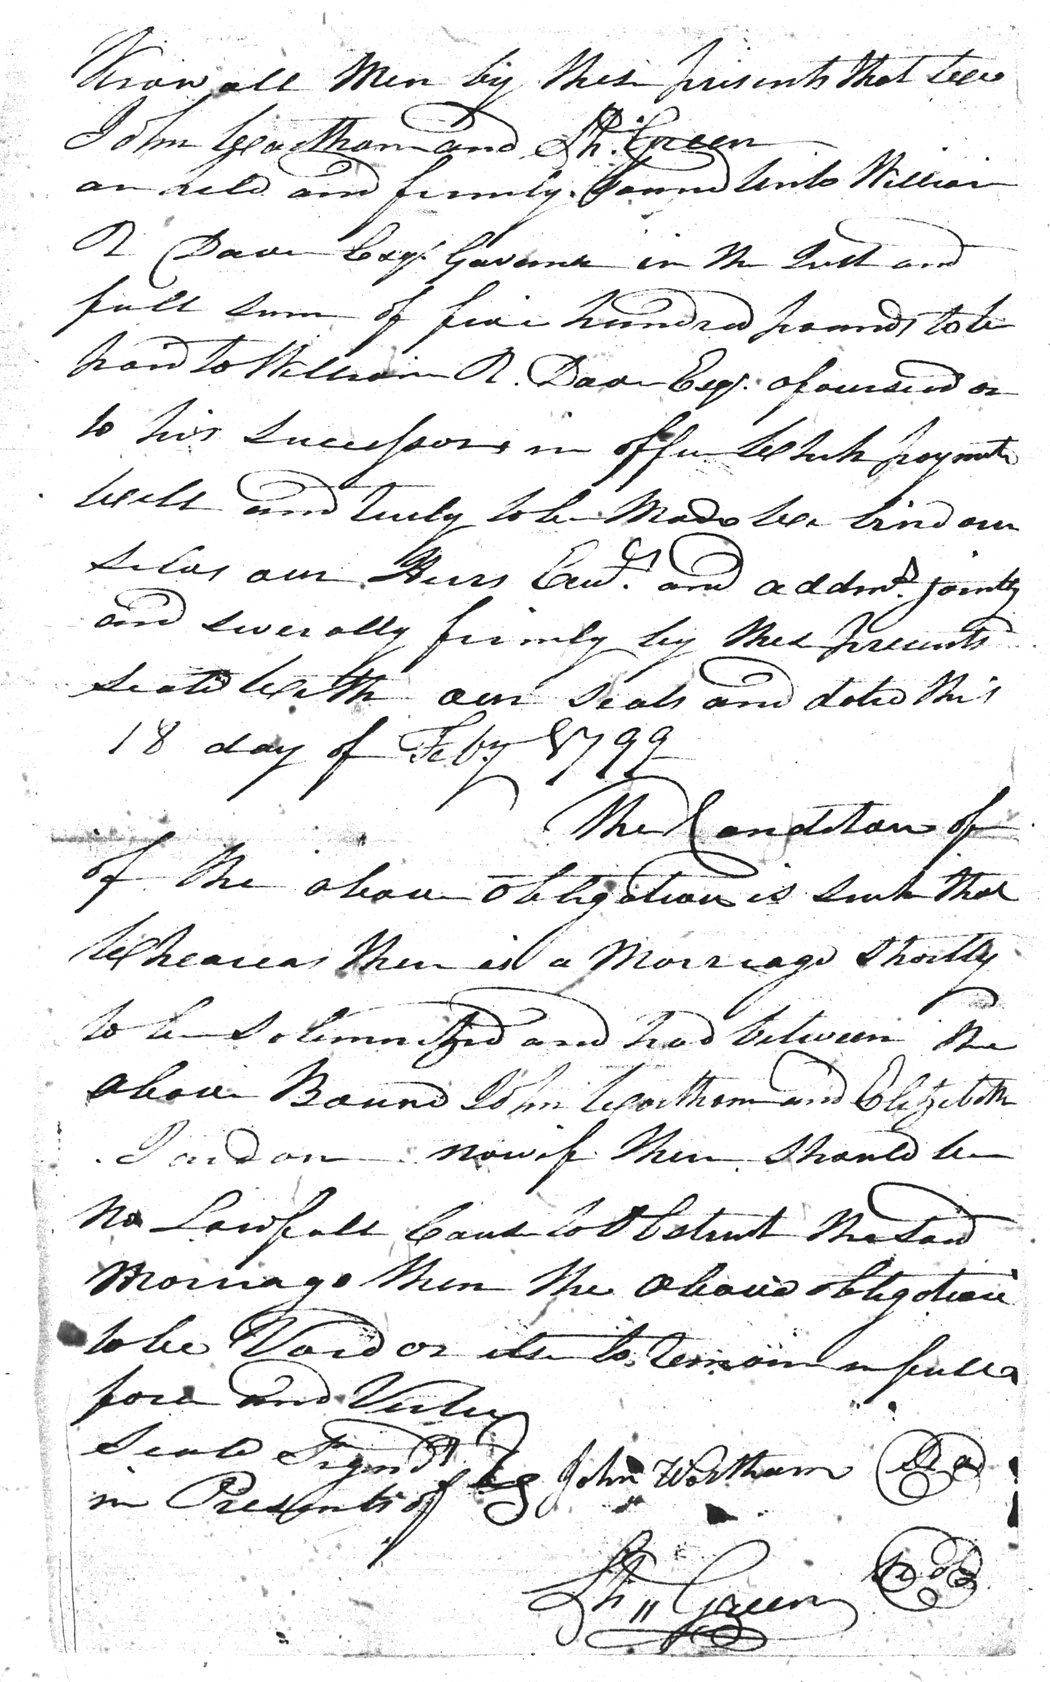 Know all Men by these presents that We
John Wortham and Sh: Green
are held and firmly Bound Unto William
R Davie Esqr. Govener in the Just and
full sum of five hundred pounds to be
paid to William R. Davie Esqr. aforesaid or
to his successors in offic Which payment
Well and truly to be Made We bind our
selves our Heirs Exer. and addmrs. jointly
and severally firmly by thes presents
Seald With our Seals and dated this
18 day of Feby 1799
The Condition of
of the above obligation is such that
Wheareas there is a Marriage shortly
to be Solemnized and had between the
above Bound John Wortham and Elizebeth
Jordon now if there should be
No Lawfull Cause to Obstruct the said
Marriage then the above obligation
to be Void or else to remain in full
force and Virtue
Seald Signd &
in Presents of
John Wortham Seal
Sh" Green Seal